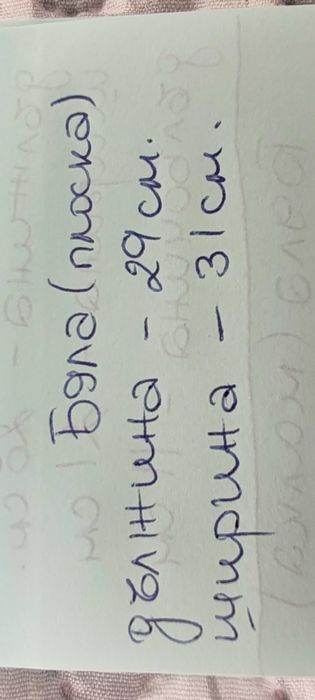 Бяла (плоска)
дължина - 29 см.
ширина - 31 см.